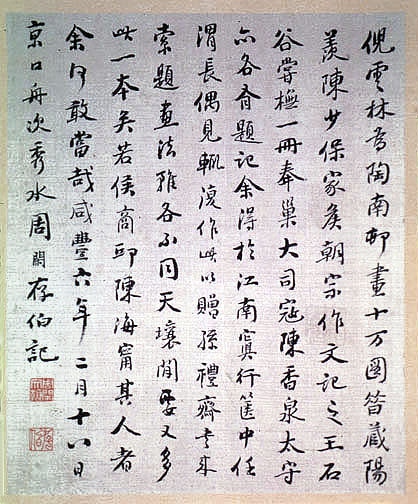 倪雲林為陶南邨畫十万圖皆藏陽
羨陳少保家矦朝宗作文記之王石
谷嘗橅一冊奉巢大司寇陳香泉太守
亦各有題記余得於江南寘行篋中任
渭長偶見輒復作此以贈孫禮齋來
索題畫法雖各不同天壤間要又多
此一本矣若侯商邱陳海甯其人者
余何敢當哉咸豐六年二月十六日
京口舟次秀水周閑存伯記